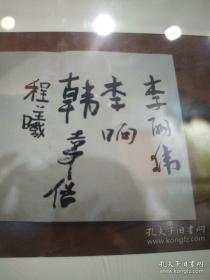 李丽伟
李响
韩事偕
程曦
孔夫子旧书网
www.kongfz.com